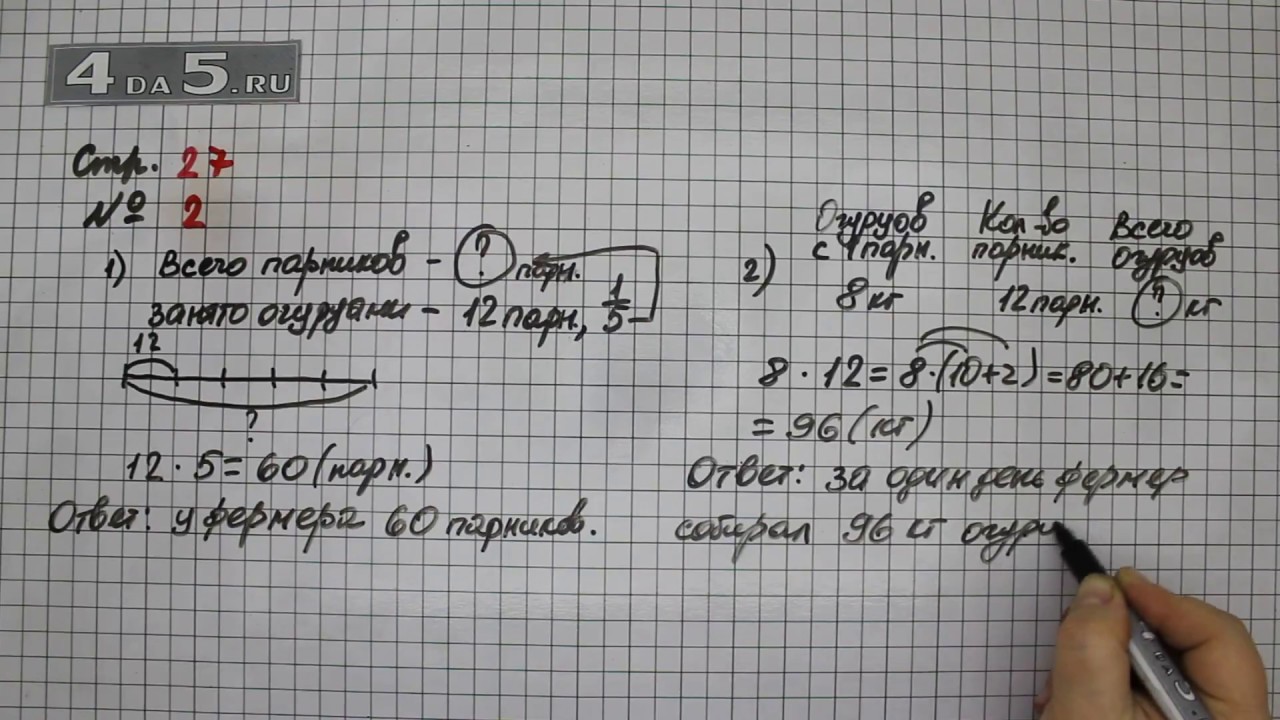 4 DA 5.RU
Стр. 27
№ 2
1) Всего парников - ? парн.
занято огурцами - 12 парн, 1/5
12
?
12 · 5 = 60 (парн.)
Ответ: у фермера 60 парников.
2)
Огурцов Кол-во Всего
с 1 парн. парник. огурцов
8 кг 12 парн. ? кг
8 · 12 = 8·(10+2) = 80+16 =
= 96 (кг)
Ответ: за один день фермер
собирал 96 кг огурц